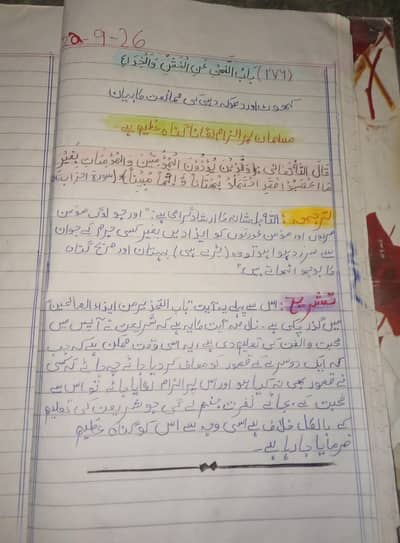 2a-9-26
(۲۷۶) بَابُ النَّهْيِ عَنِ الْغِشِّ وَالْخِدَاعِ
کھوٹ اور دھوکہ دہی کی ممانعت کا بیان
مسلمان پر الزام لگانا گناہ عظیم ہے
قَالَ اللّٰهُ تَعَالٰى: (وَالَّذِيْنَ يُؤْذُوْنَ الْمُؤْمِنِيْنَ وَالْمُؤْمِنَاتِ بِغَيْرِ
مَا اكْتَسَبُوْا فَقَدِ احْتَمَلُوْا بُهْتَانًا وَّاِثْمًا مُّبِيْنًا) (سورۃ احزاب:
ترجمہ: اللہ جل شانہ کا ارشاد گرامی ہے: "اور جو لوگ مؤمن
مردوں اور مؤمن عورتوں کو ایذا دیں بغیر کسی جرم کے جو ان
سے سرزد ہوا ہو تو وہ (بڑے ہی) بہتان اور صریح گناہ
کا بوجھ اٹھاتے ہیں"
تشریح: اس سے پہلے یہ آیت "باب التحذیر من ایذاء الصالحین"
میں گذر چکی ہے۔ آیت کا یہ ہے کہ شریعت نے آپس میں
محبت و الفت کی تعلیم دی ہے، یہ اسی وقت ممکن ہے کہ جب
کہ ایک دوسرے کے قصور کو معاف کر دیا جائے چہ جائے کہ کسی
نے قصور بھی نہ کیا ہو اور اس پر الزام لگایا جائے تو اس سے
محبت کے بجائے نفرت جنم لے گی جو شریعت کی تعلیم
کے بالکل خلاف ہے اسی وجہ سے اس کو گناہ عظیم
فرمایا جا رہا ہے۔